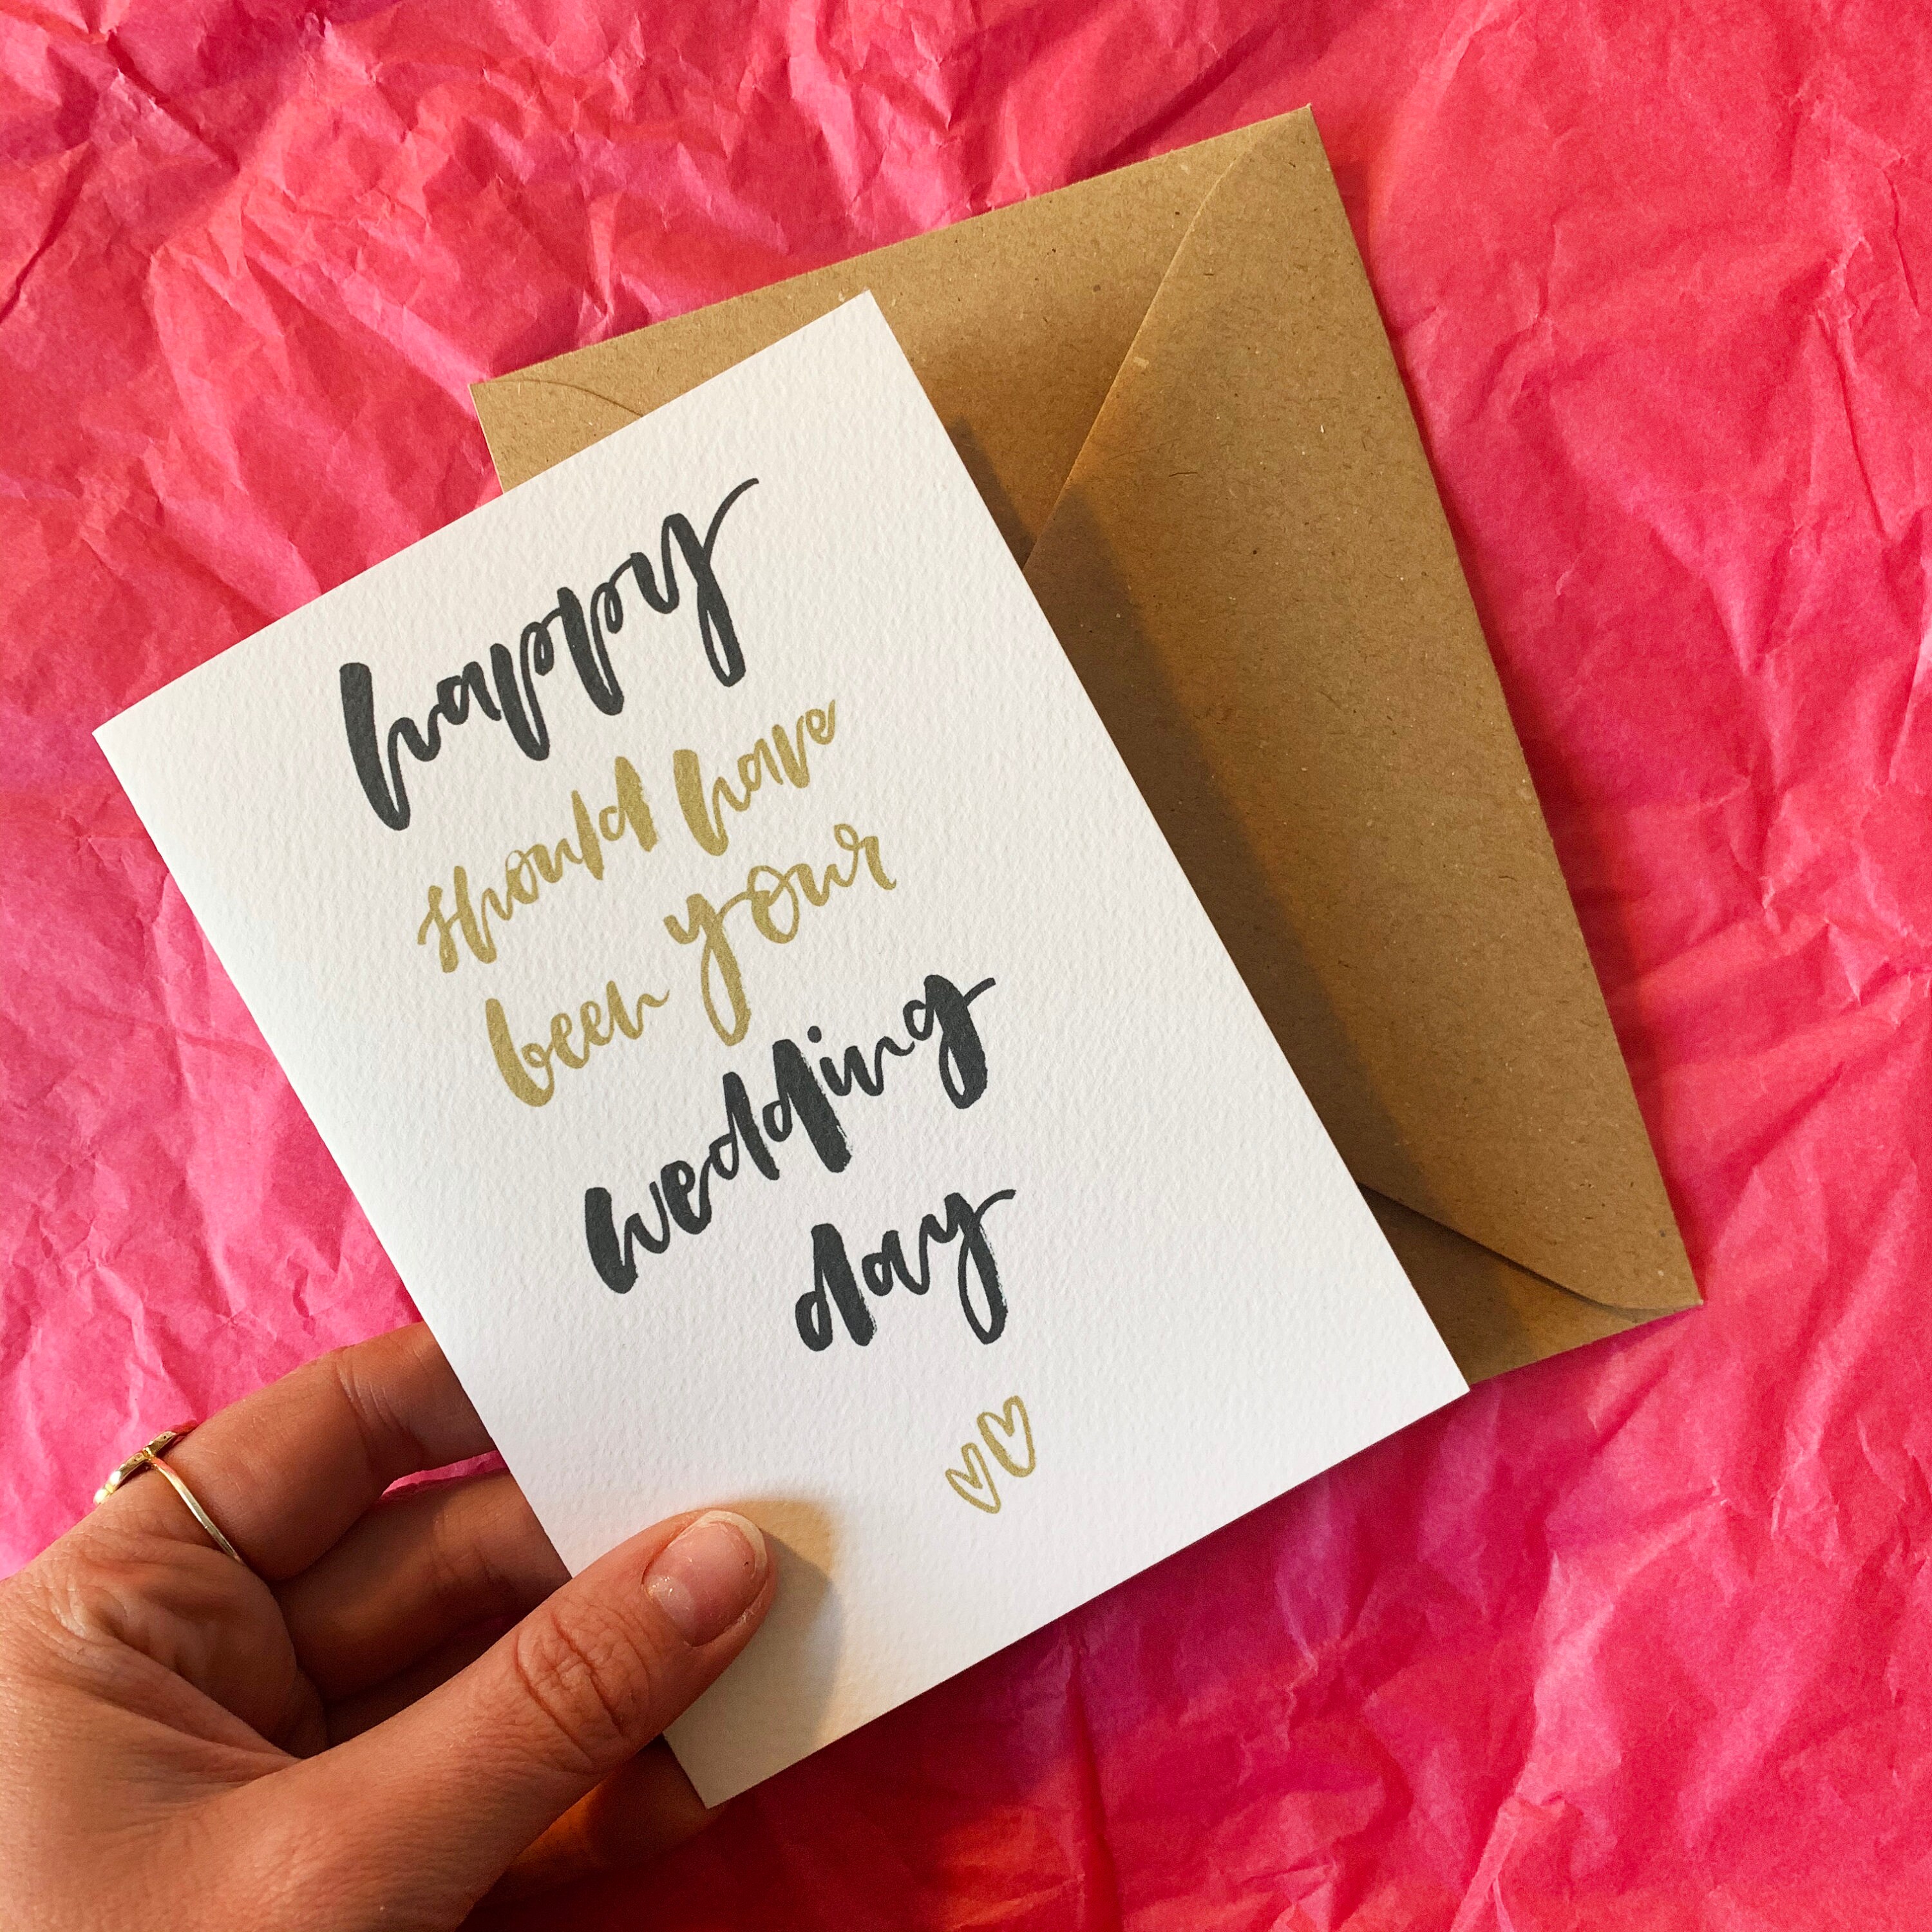 happy
should have
been your
wedding
day